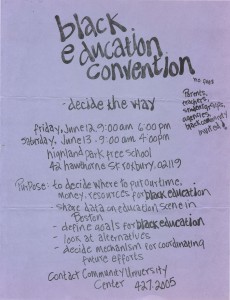 black
education
convention
no fees
Parents,
teachers,
student groups,
agencies,
black community
invited!
- decide the way
friday, June 12, 9:00 am 6:00 pm
saturday, June 13 - 9:00 am - 4:00 pm
highland park free school
42 hawthorne st roxbury, 02119
Purpose - to decide where to put our time,
money, resources for black education
- share data on education scene in
Boston
- define goals for black education
- look at alternatives
- decide mechanism for coordinating
future efforts
Contact Community University
Center 427.2005